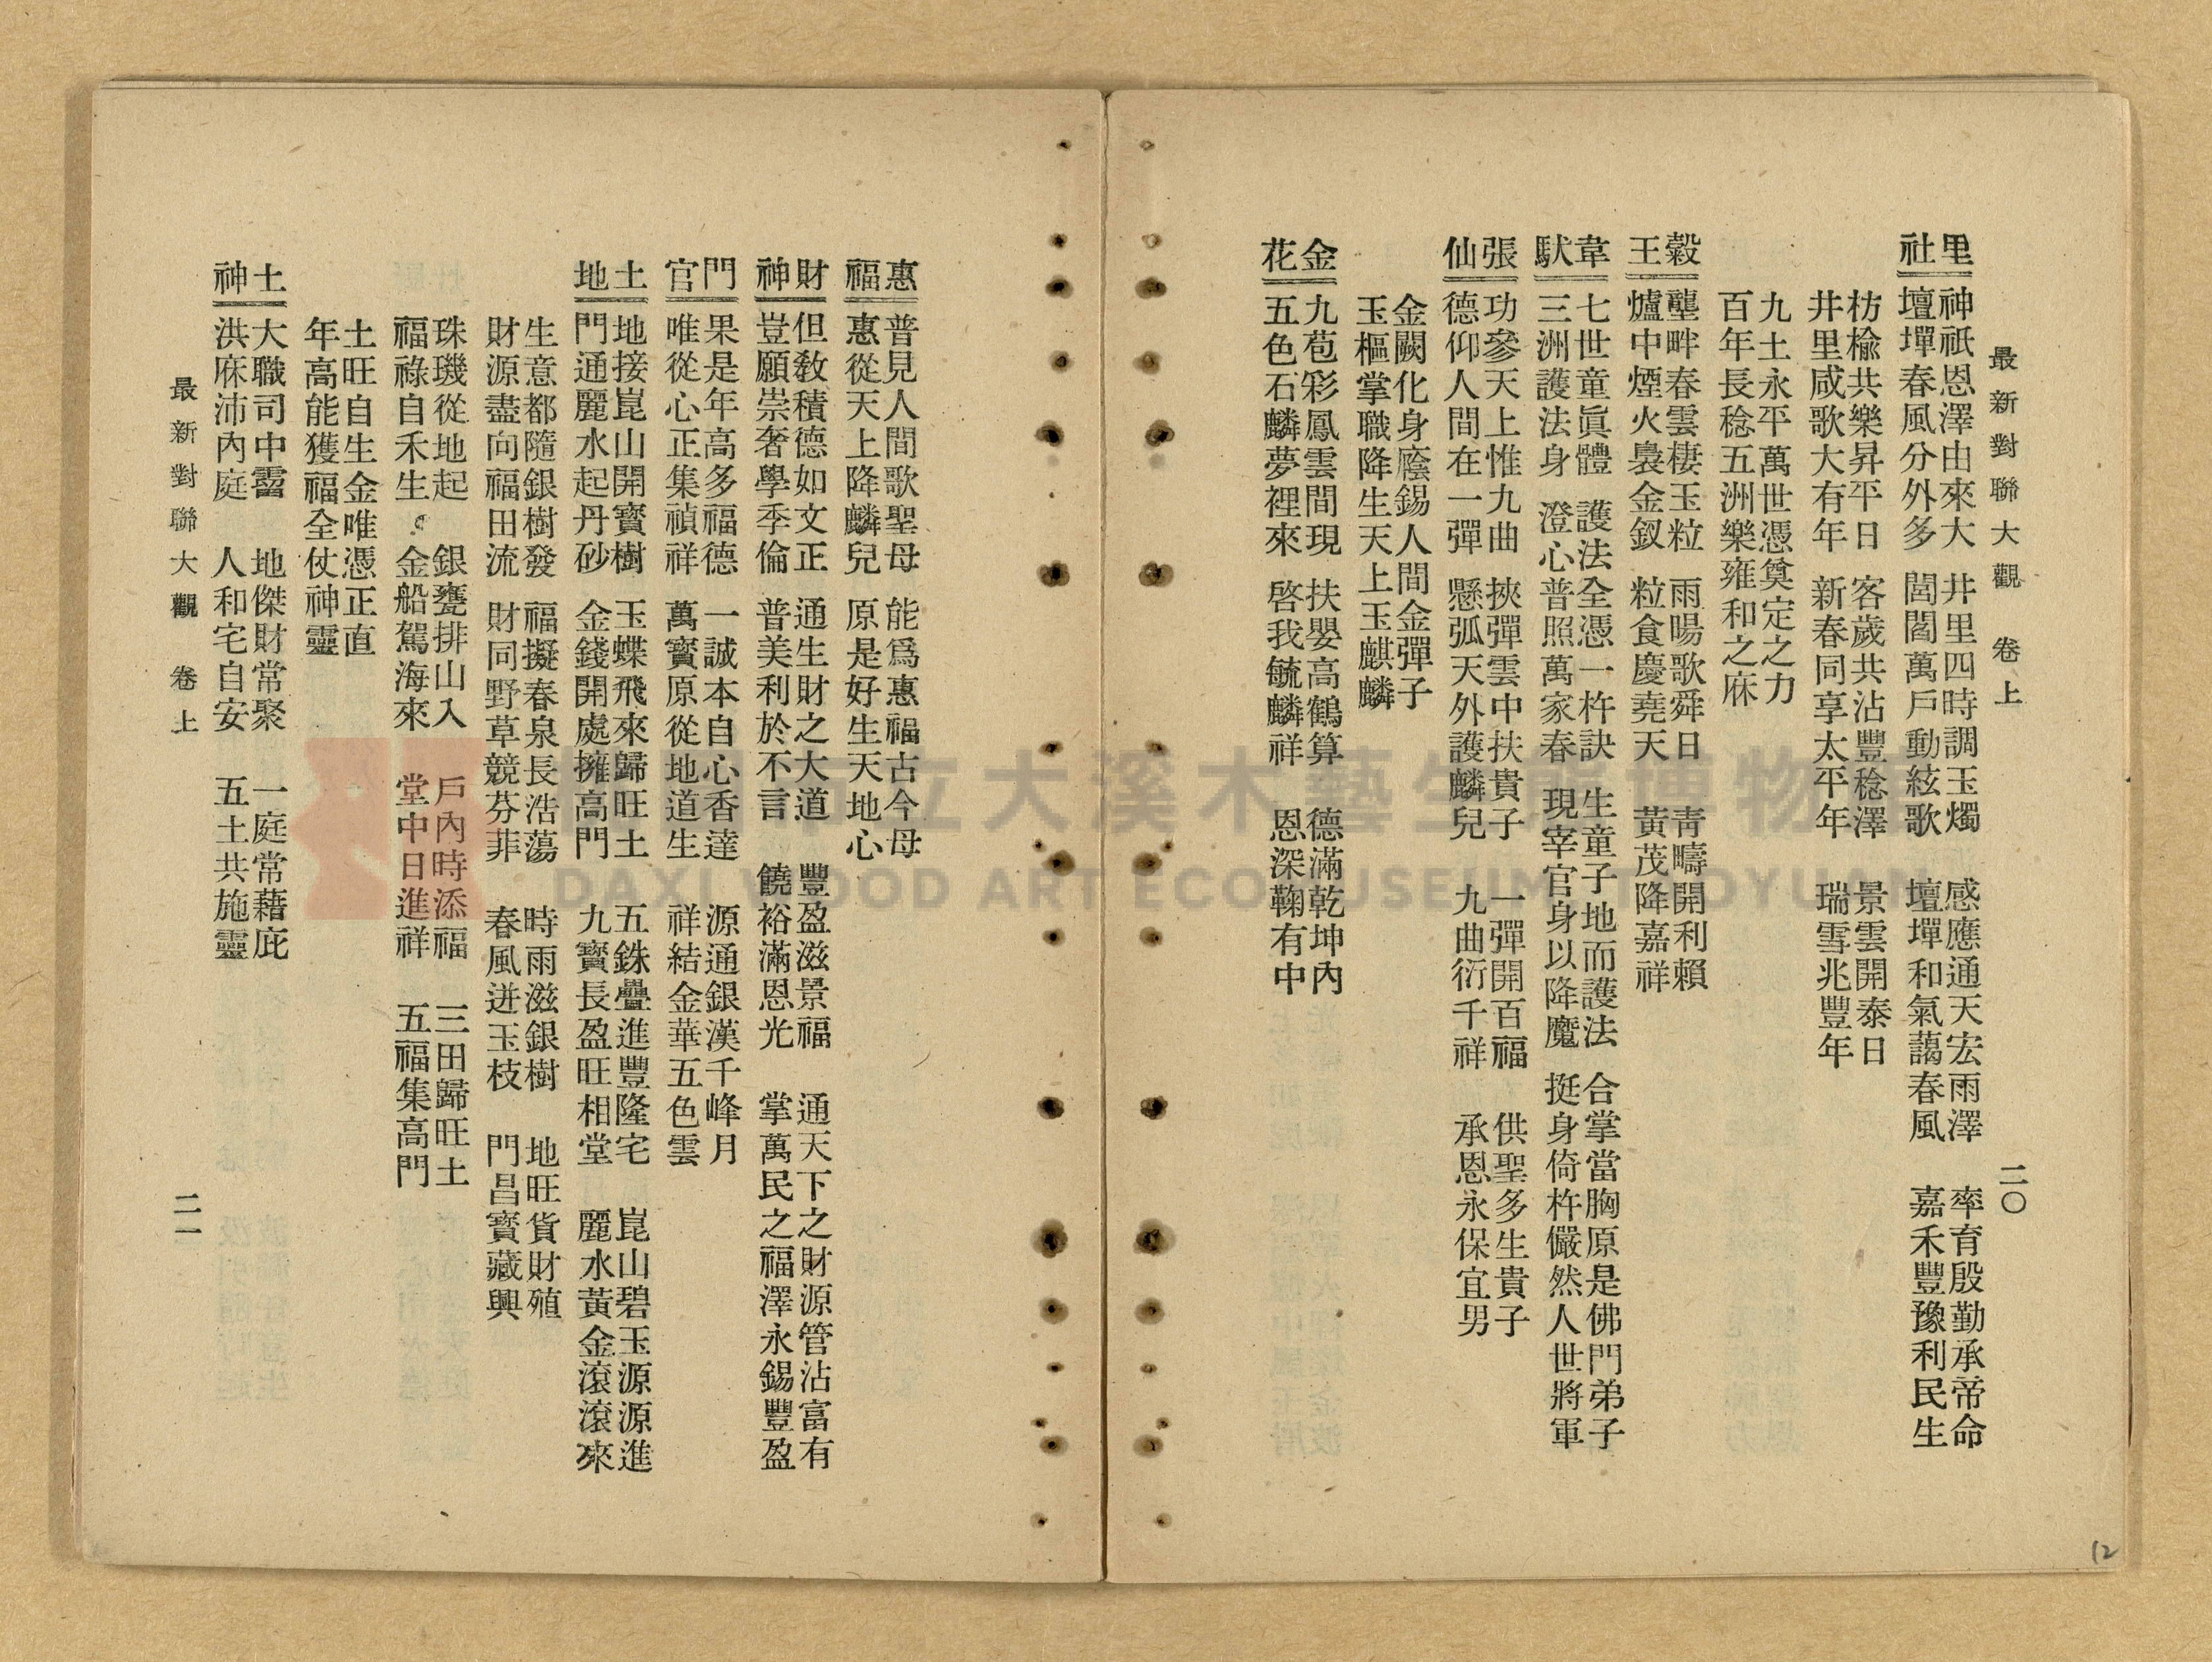 最新對聯大觀 卷上 二〇
里社
神祇恩澤由來大 井里四時調玉燭 感應通天宏雨澤 率育殷勤承帝命
壇墠春風分外多 閭閻萬戶動絃歌 壇墠和氣藹春風 嘉禾豐豫利民生
枌榆共樂昇平日 客歲共沾豐稔澤 景雲開泰日
井里咸歌大有年 新春同享太平年 瑞雪兆豐年
九土永平萬世憑奠定之力
百年長稔五洲樂雍和之庥
穀王
壟畔春雲棲玉粒 雨暘歌舜日 青疇開利賴
爐中煙火裊金釵 粒食慶堯天 黃茂降嘉祥
韋馱
七世童眞體 護法全憑一杵訣 生童子地而護法 合掌當胸原是佛門弟子
三洲護法身 澄心普照萬家春 現宰官身以降魔 挺身倚杵儼然人世將軍
張仙
功參天上惟九曲 挾彈雲中扶貴子 一彈開百福 供聖多生貴子
德仰人間在一彈 懸弧天外護麟兒 九曲衍千祥 承恩永保宜男
金闕化身廕錫人間金彈子
玉樞掌職降生天上玉麒麟
金花
九苞彩鳳雲間現 扶嬰高鶴算 德滿乾坤內
五色石麟夢裡來 啓我毓麟祥 恩深鞠有中
惠福
普見人間歌聖母 能爲惠福古今母
惠從天上降麟兒 原是好生天地心
財神
但敎積德如文正 通生財之大道 豐盈滋景福 通天下之財源管沾富有
豈願崇奢學季倫 普美利於不言 饒裕滿恩光 掌萬民之福澤永錫豐盈
門官
果是年高多福德 一誠本自心香達 源通銀漢千峰月
唯從心正集禎祥 萬寶原從地道生 祥結金華五色雲
土地
地接崑山開寶樹 玉蝶飛來歸旺土 五銖疊進豐隆宅 崑山碧玉源源進
門通麗水起丹砂 金錢開處擁高門 九寶長盈旺相堂 麗水黃金滾滾來
生意都隨銀樹發 福擬春泉長浩蕩 時雨滋銀樹 地旺貨財殖
財源盡向福田流 財同野草競芬菲 春風迸玉枝 門昌寶藏興
珠璣從地起 銀甕排山入 戶內時添福 三田歸旺土
福祿自禾生 金船駕海來 堂中日進祥 五福集高門
土旺自生金唯憑正直
年高能獲福全仗神靈
土神
大職司中霤 地傑財常聚 一庭常藉庇
洪庥沛內庭 人和宅自安 五土共施靈
最新對聯大觀 卷上 二一
立大溪木藝生態博物
DAXI WOOD ART ECOMUSEUM, TAOYUAN
12